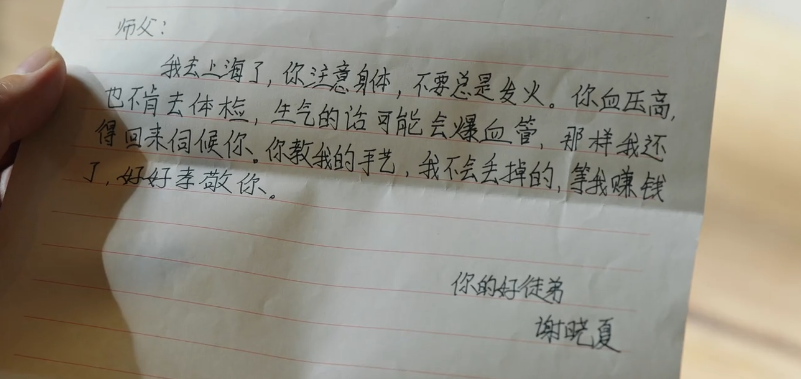 师父：
我去上海了，你注意身体，不要总是发火。你血压高，
也不肯去体检，生气的话可能会爆血管，那样我还
得回来伺候你。你教我的手艺，我不会丢掉的，等我赚钱
了，好好孝敬你。
你的好徒弟
谢晓夏